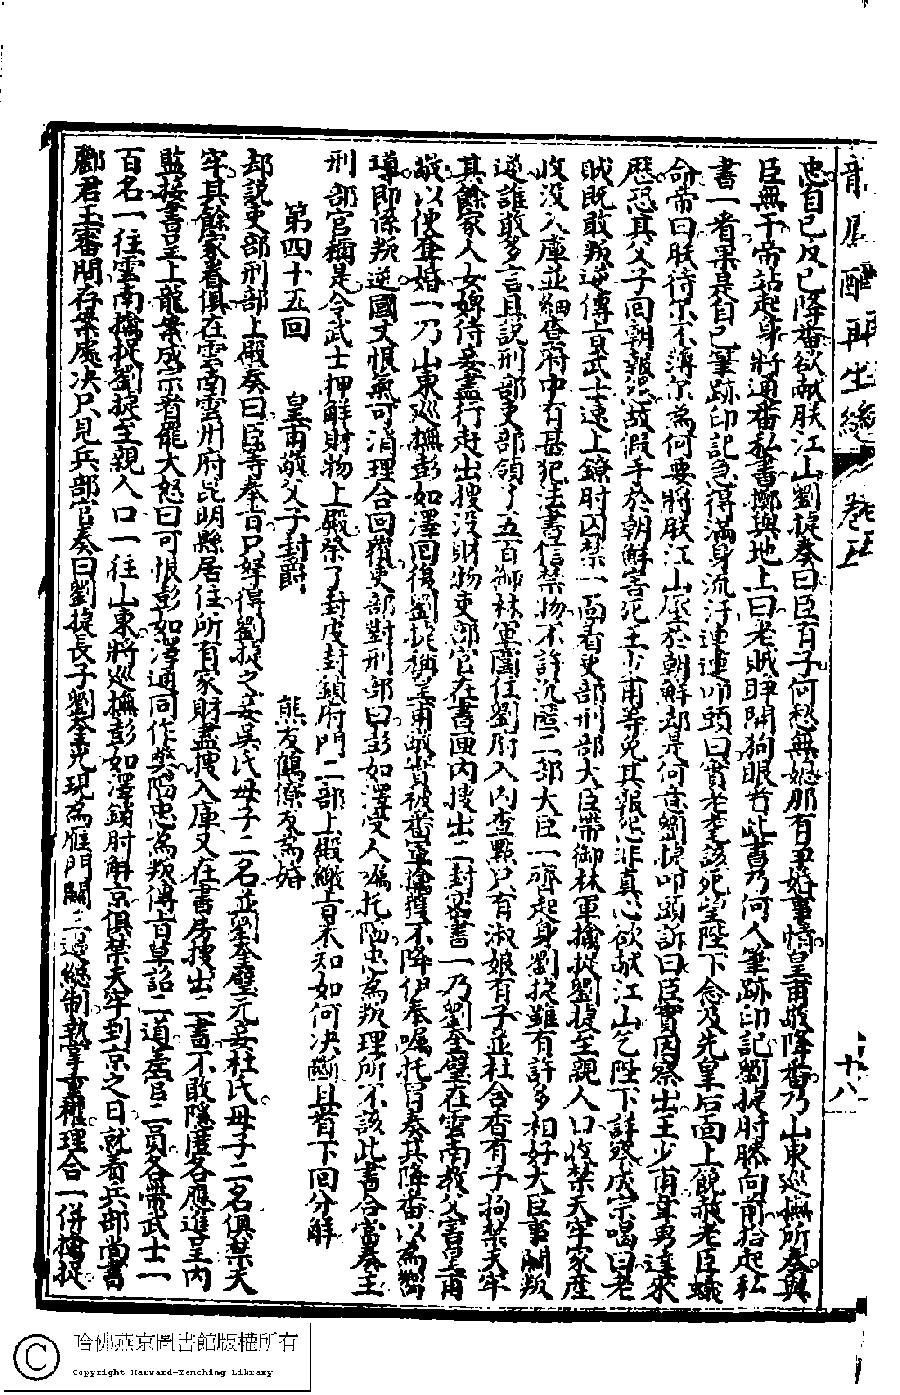 龍鳳配再生緣 卷五 十八
忠自己反已降番欲献朕江山劉捉奏曰臣百子何愁無媳那有爭好事情皇甫敬降番乃山東巡撫所奏與
臣無干帝站起身將通番私書擲與地上曰老賊睜開狗眼看此書乃何人筆跡印記劉捉肘膝向前拾起私
書一看果是自己筆跡印記急得滿身流汗連連叩頭曰實老李該死望陛下念及先皇后面上饒赦老臣蟻
命帝曰朕待尔不薄尔為何要將朕江山压於朝鮮却是何意劉捉叩頭訴曰臣實因察出王少甫英勇達來
歷恐其父子回朝報怨故假手於朝鮮害死王少甫等免其報怨非真心欲献江山乞陛下詳察成宗喝曰老
賊既敢叛逆傳旨武士速上鐐肘囚禁一面着吏部刑部大臣帶御林軍擒捉劉捉至親人口收禁天牢家產
收没入庫並細查府中有甚犯法書信禁物不許沉匿二部大臣一齊起身劉捉雖有許多相好大臣事關叛
逆誰敢多言且說刑部吏部領了五百御林軍圍住劉府入內查點只有淑娘有子並杜含香有子拘禁天牢
其餘家人女婢侍妾盡行赶出搜没財物吏部官在書画內搜出二封密書一乃劉奎璧在雲南教父害皇甫
敬以便娶婚一乃山東巡撫彭如澤回復劉捉稱皇甫敬實被番軍擒獲不降伊奉嘱托冒奏其降番以為嚮
導即係叛逆國丈恨無可消理合回覆吏部對刑部曰彭如澤受人嘱托陷忠為叛理所不該此書合當奏主
刑部官稱是令武士押解財物上殿祭了封皮封鎖府門二部上殿繳旨未知如何决斷且看下回分解
第四十五回 皇甫敬父子封爵 熊友鶴僚友為婚
却説吏部刑部上殿奏曰臣等奉旨只好得劉捉之妾吳氏母子二名並劉奎璧元妾杜氏母子二名俱禁天
牢其餘家眷俱在雲南雲州府昆明縣居住所有家財盡搜入庫又在書房搜出二書不敢隱匿各應進呈內
監接書呈上龍案成宗看罷大怒曰可恨彭如澤通同作弊陷忠為叛傳旨草詔二道差官二員各帶武士二
百名一往雲南擒捉劉捉至親人口一往山東將巡撫彭如澤鎖肘解京俱禁天牢到京之日就着兵部尚書
酈君玉審問存案處决只見兵部官奏曰劉捉長子劉奎光現為雁門關三邊總制執掌重權理合一併擒捉
哈佛燕京圖書館版權所有
Copyright Harvard-Yenching Library